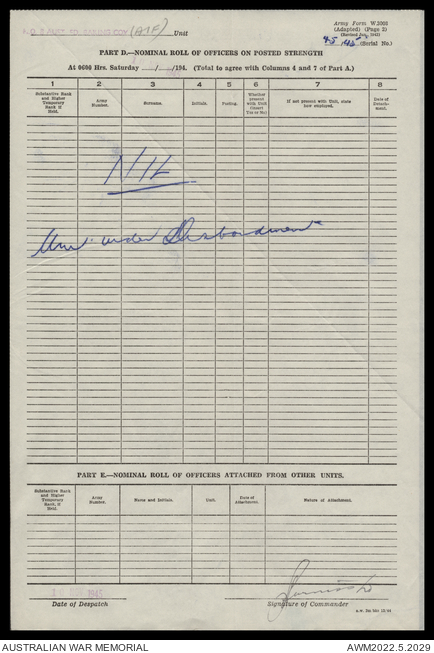 (AIF) Unit
Army Form W.3008
(Adapted) (Page 2)
45/45 (Serial No.)
PART D.—NOMINAL ROLL OF OFFICERS ON POSTED STRENGTH
At 0600 Hrs. Saturday / /194. (Total to agree with Columns 4 and 7 of Part A.)
1 2 3 4 5 6 7 8
Substantive Rank and Higher Temporary Rank if Held. Army Number. Surname. Initials. Posting. Whether present with Unit (insert Yes or No) If not present with Unit, state how employed. Date of Detachment.
NIL
Unit under Disbandment
PART E.—NOMINAL ROLL OF OFFICERS ATTACHED FROM OTHER UNITS.
Substantive Rank and Higher Temporary Rank, if Held. Army Number. Name and Initials. Unit. Date of Attachment. Nature of Attachment.
1945
Date of Despatch
Signature of Commander
AUSTRALIAN WAR MEMORIAL
AWM2022.5.2029